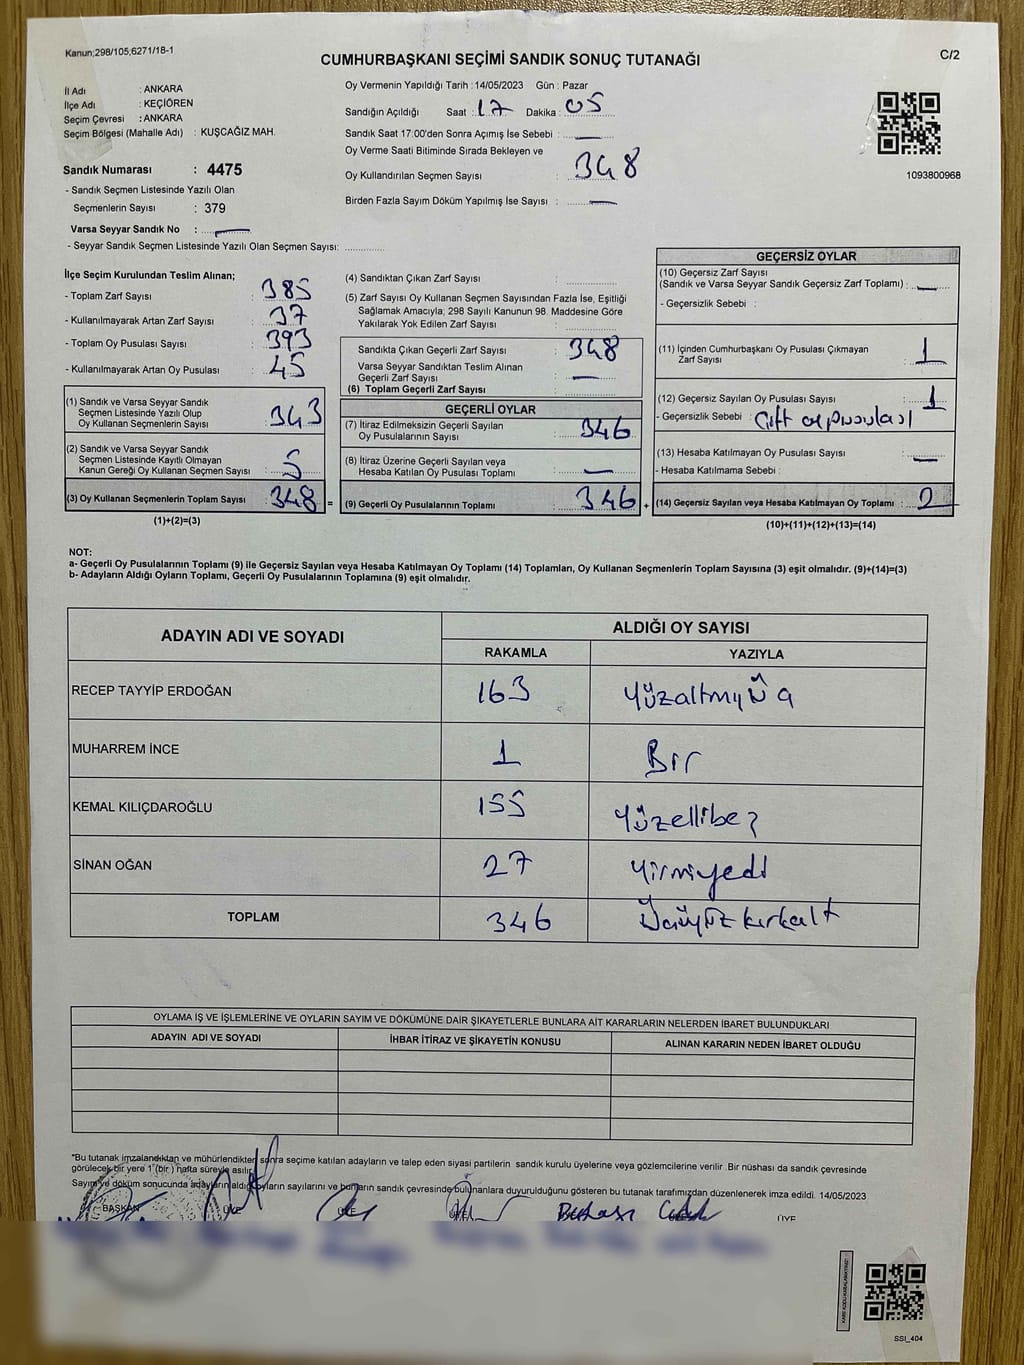 Kanun;298/105,6271/18-1
CUMHURBAŞKANI SEÇİMİ SANDIK SONUÇ TUTANAĞI
C/2
İl Adı : ANKARA
İlçe Adı : KEÇİÖREN
Seçim Çevresi : ANKARA
Seçim Bölgesi (Mahalle Adı) : KUŞCAĞIZ MAH.
Oy Vermenin Yapıldığı Tarih : 14/05/2023 Gün : Pazar
Sandığın Açıldığı Saat : 17 Dakika : 05
Sandık Saat 17:00'den Sonra Açımış İse Sebebi : —
Oy Verme Saati Bitiminde Sırada Bekleyen ve
Oy Kullandırılan Seçmen Sayısı : 348
Birden Fazla Sayım Döküm Yapılmış İse Sayısı : —
1093800968
Sandık Numarası : 4475
- Sandık Seçmen Listesinde Yazılı Olan
Seçmenlerin Sayısı : 379
Varsa Seyyar Sandık No : —
- Seyyar Sandık Seçmen Listesinde Yazılı Olan Seçmen Sayısı:
İlçe Seçim Kurulundan Teslim Alınan;
- Toplam Zarf Sayısı : 385
- Kullanılmayarak Artan Zarf Sayısı : 37
- Toplam Oy Pusulası Sayısı : 393
- Kullanılmayarak Artan Oy Pusulası : 45
(1) Sandık ve Varsa Seyyar Sandık
Seçmen Listesinde Yazılı Olup
Oy Kullanan Seçmenlerin Sayısı : 343
(2) Sandık ve Varsa Seyyar Sandık
Seçmen Listesinde Kayıtlı Olmayan
Kanun Gereği Oy Kullanan Seçmen Sayısı : 5
(3) Oy Kullanan Seçmenlerin Toplam Sayısı : 348 =
(1)+(2)=(3)
(4) Sandıktan Çıkan Zarf Sayısı :
(5) Zarf Sayısı Oy Kullanan Seçmen Sayısından Fazla İse, Eşitliği
Sağlamak Amacıyla; 298 Sayılı Kanunun 98. Maddesine Göre
Yakılarak Yok Edilen Zarf Sayısı :
Sandıkta Çıkan Geçerli Zarf Sayısı : 348
Varsa Seyyar Sandıktan Teslim Alınan
Geçerli Zarf Sayısı : —
(6) Toplam Geçerli Zarf Sayısı
GEÇERLİ OYLAR
(7) İtiraz Edilmeksizin Geçerli Sayılan
Oy Pusulalarının Sayısı : 346
(8) İtiraz Üzerine Geçerli Sayılan veya
Hesaba Katılan Oy Pusulası Toplamı : —
(9) Geçerli Oy Pusulalarının Toplamı : 346 +
GEÇERSİZ OYLAR
(10) Geçersiz Zarf Sayısı
(Sandık ve Varsa Seyyar Sandık Geçersiz Zarf Toplamı) : —
- Geçersizlik Sebebi :
(11) İçinden Cumhurbaşkanı Oy Pusulası Çıkmayan
Zarf Sayısı : 1
(12) Geçersiz Sayılan Oy Pusulası Sayısı : 1
- Geçersizlik Sebebi : Çift oy pusulası
(13) Hesaba Katılmayan Oy Pusulası Sayısı : —
- Hesaba Katılmama Sebebi :
(14) Geçersiz Sayılan veya Hesaba Katılmayan Oy Toplamı : 2
(10)+(11)+(12)+(13)=(14)
NOT:
a- Geçerli Oy Pusulalarının Toplamı (9) ile Geçersiz Sayılan veya Hesaba Katılmayan Oy Toplamı (14) Toplamları, Oy Kullanan Seçmenlerin Toplam Sayısına (3) eşit olmalıdır. (9)+(14)=(3)
b- Adayların Aldığı Oyların Toplamı, Geçerli Oy Pusulalarının Toplamına (9) eşit olmalıdır.
ADAYIN ADI VE SOYADI
ALDIĞI OY SAYISI
RAKAMLA YAZIYLA
RECEP TAYYİP ERDOĞAN 163
MUHARREM İNCE 1 Bir
KEMAL KILIÇDAROĞLU 155 Yüzellibeş
SİNAN OĞAN 27 Yirmiyedi
TOPLAM 346 Üçyüzkırkaltı
OYLAMA İŞ VE İŞLEMLERİNE VE OYLARIN SAYIM VE DÖKÜMÜNE DAİR ŞİKAYETLERLE BUNLARA AİT KARARLARIN NELERDEN İBARET BULUNDUKLARI
ADAYIN ADI VE SOYADI İHBAR İTİRAZ VE ŞİKAYETİN KONUSU ALINAN KARARIN NEDEN İBARET OLDUĞU
"Bu tutanak imzalandıktan ve mühürlendikten sonra seçime katılan adayların ve talep eden siyasi partilerin sandık kurulu üyelerine veya gözlemcilerine verilir .Bir nüshası da sandık çevresinde
görülecek bir yere 1 (bir ) hafta süreyle asılır.
Sayım ve döküm sonucunda adayların aldığı oyların sayılarını ve bunların sandık çevresinde bulunanlara duyurulduğunu gösteren bu tutanak tarafımızdan düzenlenerek imza edildi. 14/05/2023
BAŞKAN ÜYE ÜYE ÜYE ÜYE
SSI_404